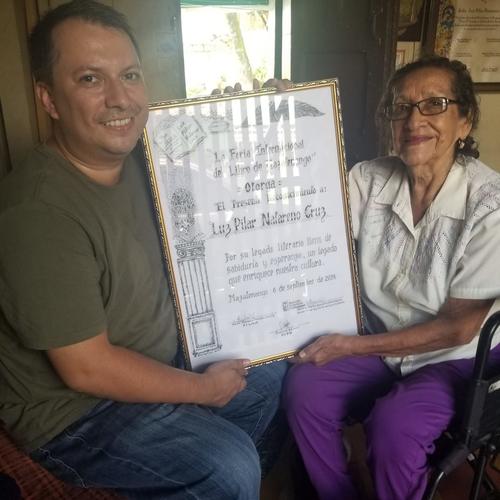 La Feria Internacional
del Libro de Mazatenango
Otorga:
El Presente Reconocimiento a:
Luz Pilar Natareno Cruz
Por su legado literario lleno de
sabiduría y esperanza, un legado
que enriquece nuestra cultura.
Mazatenango 6 de septiembre de 2024